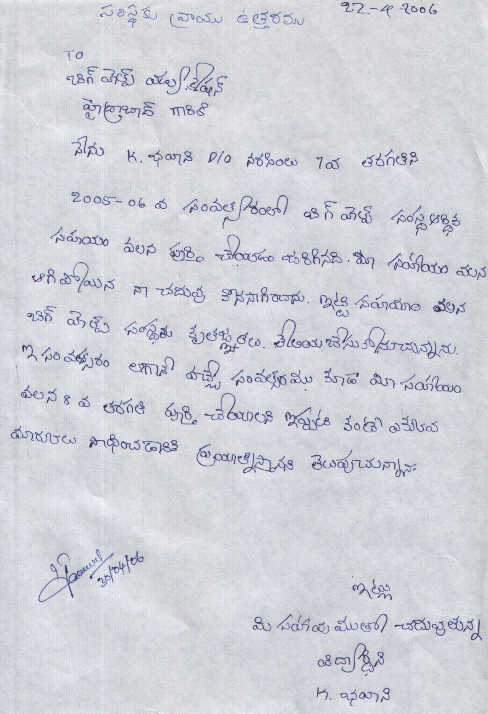 సంస్థకు వ్రాయు ఉత్తరము 22-4-2006
TO
బిగ్ హెల్ప్ ఎడ్యుకేషన్
హైద్రాబాద్ గారికి
నేను K. భవాని D/O నరసింలు 7వ తరగతిని
2005-06 వ సంవత్సరంలో బిగ్ హెల్ప్ సంస్థ ఆర్థిక
సహాయం వలన పూర్తి చేయడం జరిగినది. మీ సహాయం వలన
ఆగిపోయిన నా చదువు కొనసాగించాను. ఇట్టి సహాయం వలన
బిగ్ హెల్ప్ సంస్థకు కృతజ్ఞతలు తెలియచేసుకొనుచున్నాను.
ఇ సంవత్సరం లాగానే వచ్చే సంవత్సరము కూడా మీ సహాయం
వలన 8 వ తరగతి పూర్తి చేయాలని ఇప్పటి కంటే ఎక్కువ
మార్కులు సాధించడానికి ప్రయత్నిస్తానని తెలుపుచున్నాను.
30/04/06
ఇట్లు
మీ సహాయముతో చదువుతున్న
విద్యార్థిని
K. భవాని